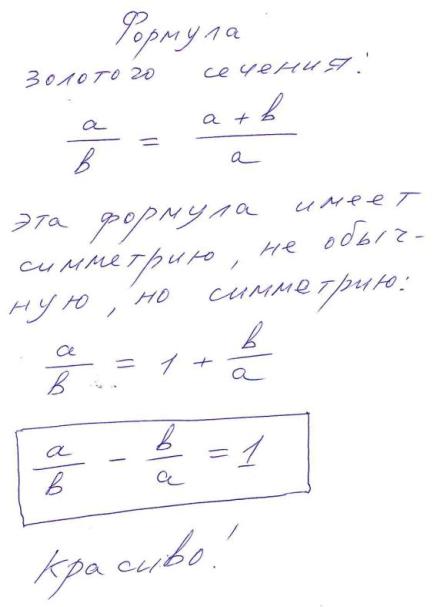 Формула
золотого сечения:
a/b = (a + b)/a
Эта формула имеет
симметрию, не обыч-
ную, но симметрию:
a/b = 1 + b/a
a/b - b/a = 1
Красиво!